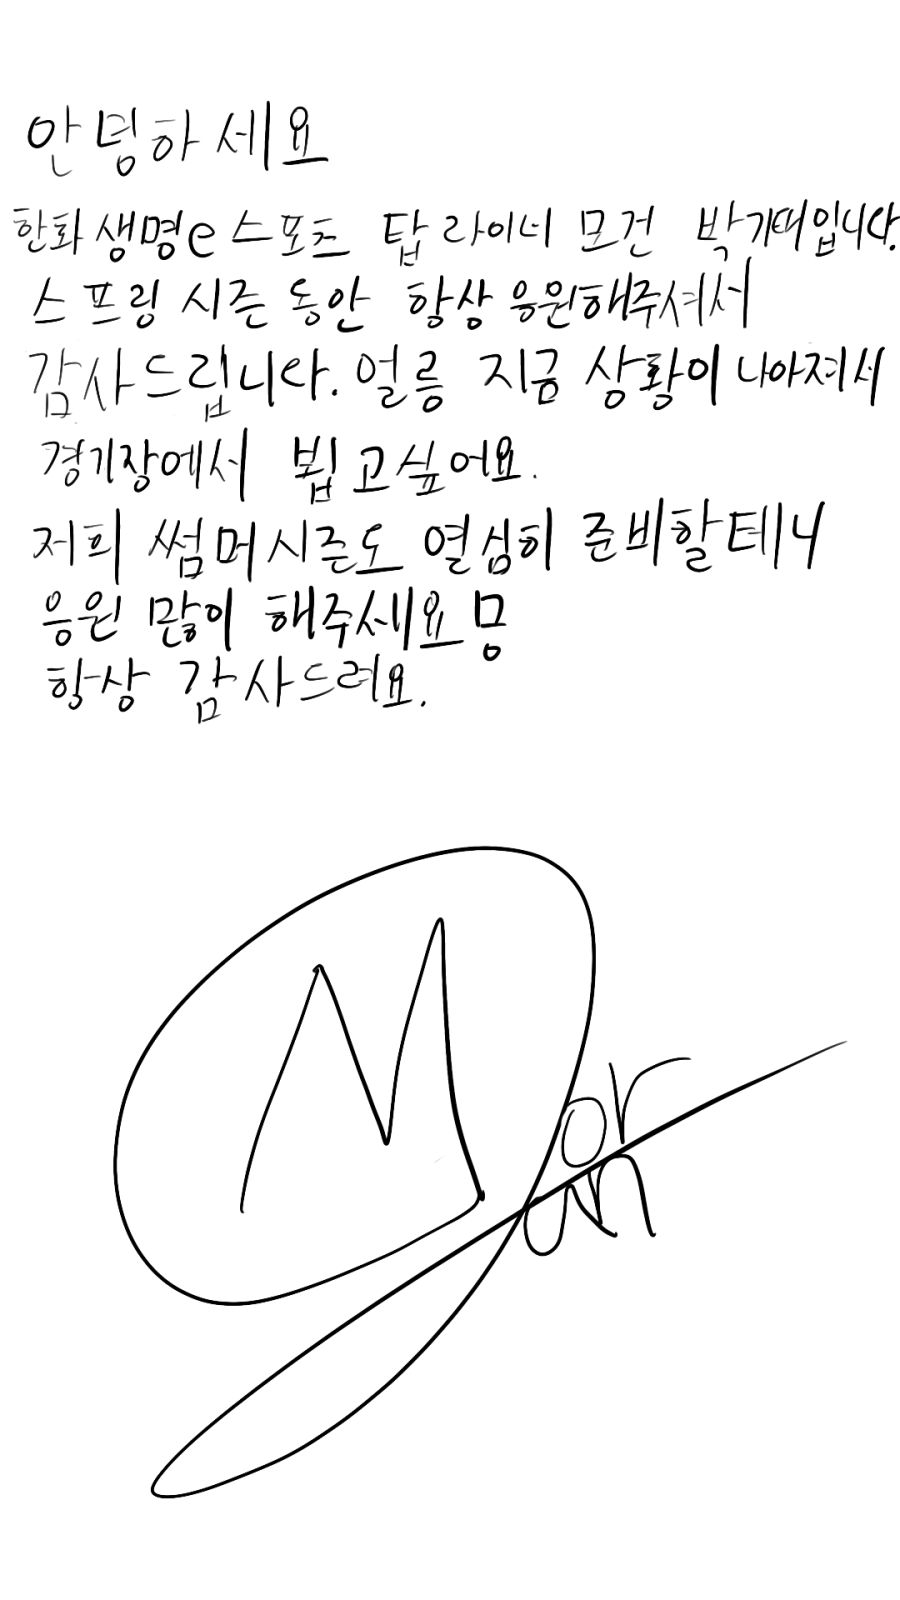 안녕하세요
한화생명e스포츠 탑 라이너 모건 박기태입니다.
스프링 시즌 동안 항상 응원해주셔서
감사드립니다. 얼릉 지금 상황이 나아져서
경기장에서 뵙고싶어요.
저희 썸머시즌도 열심히 준비할테니
응원 많이 해주세요 뭉
항상 감사드려요.
Morgan